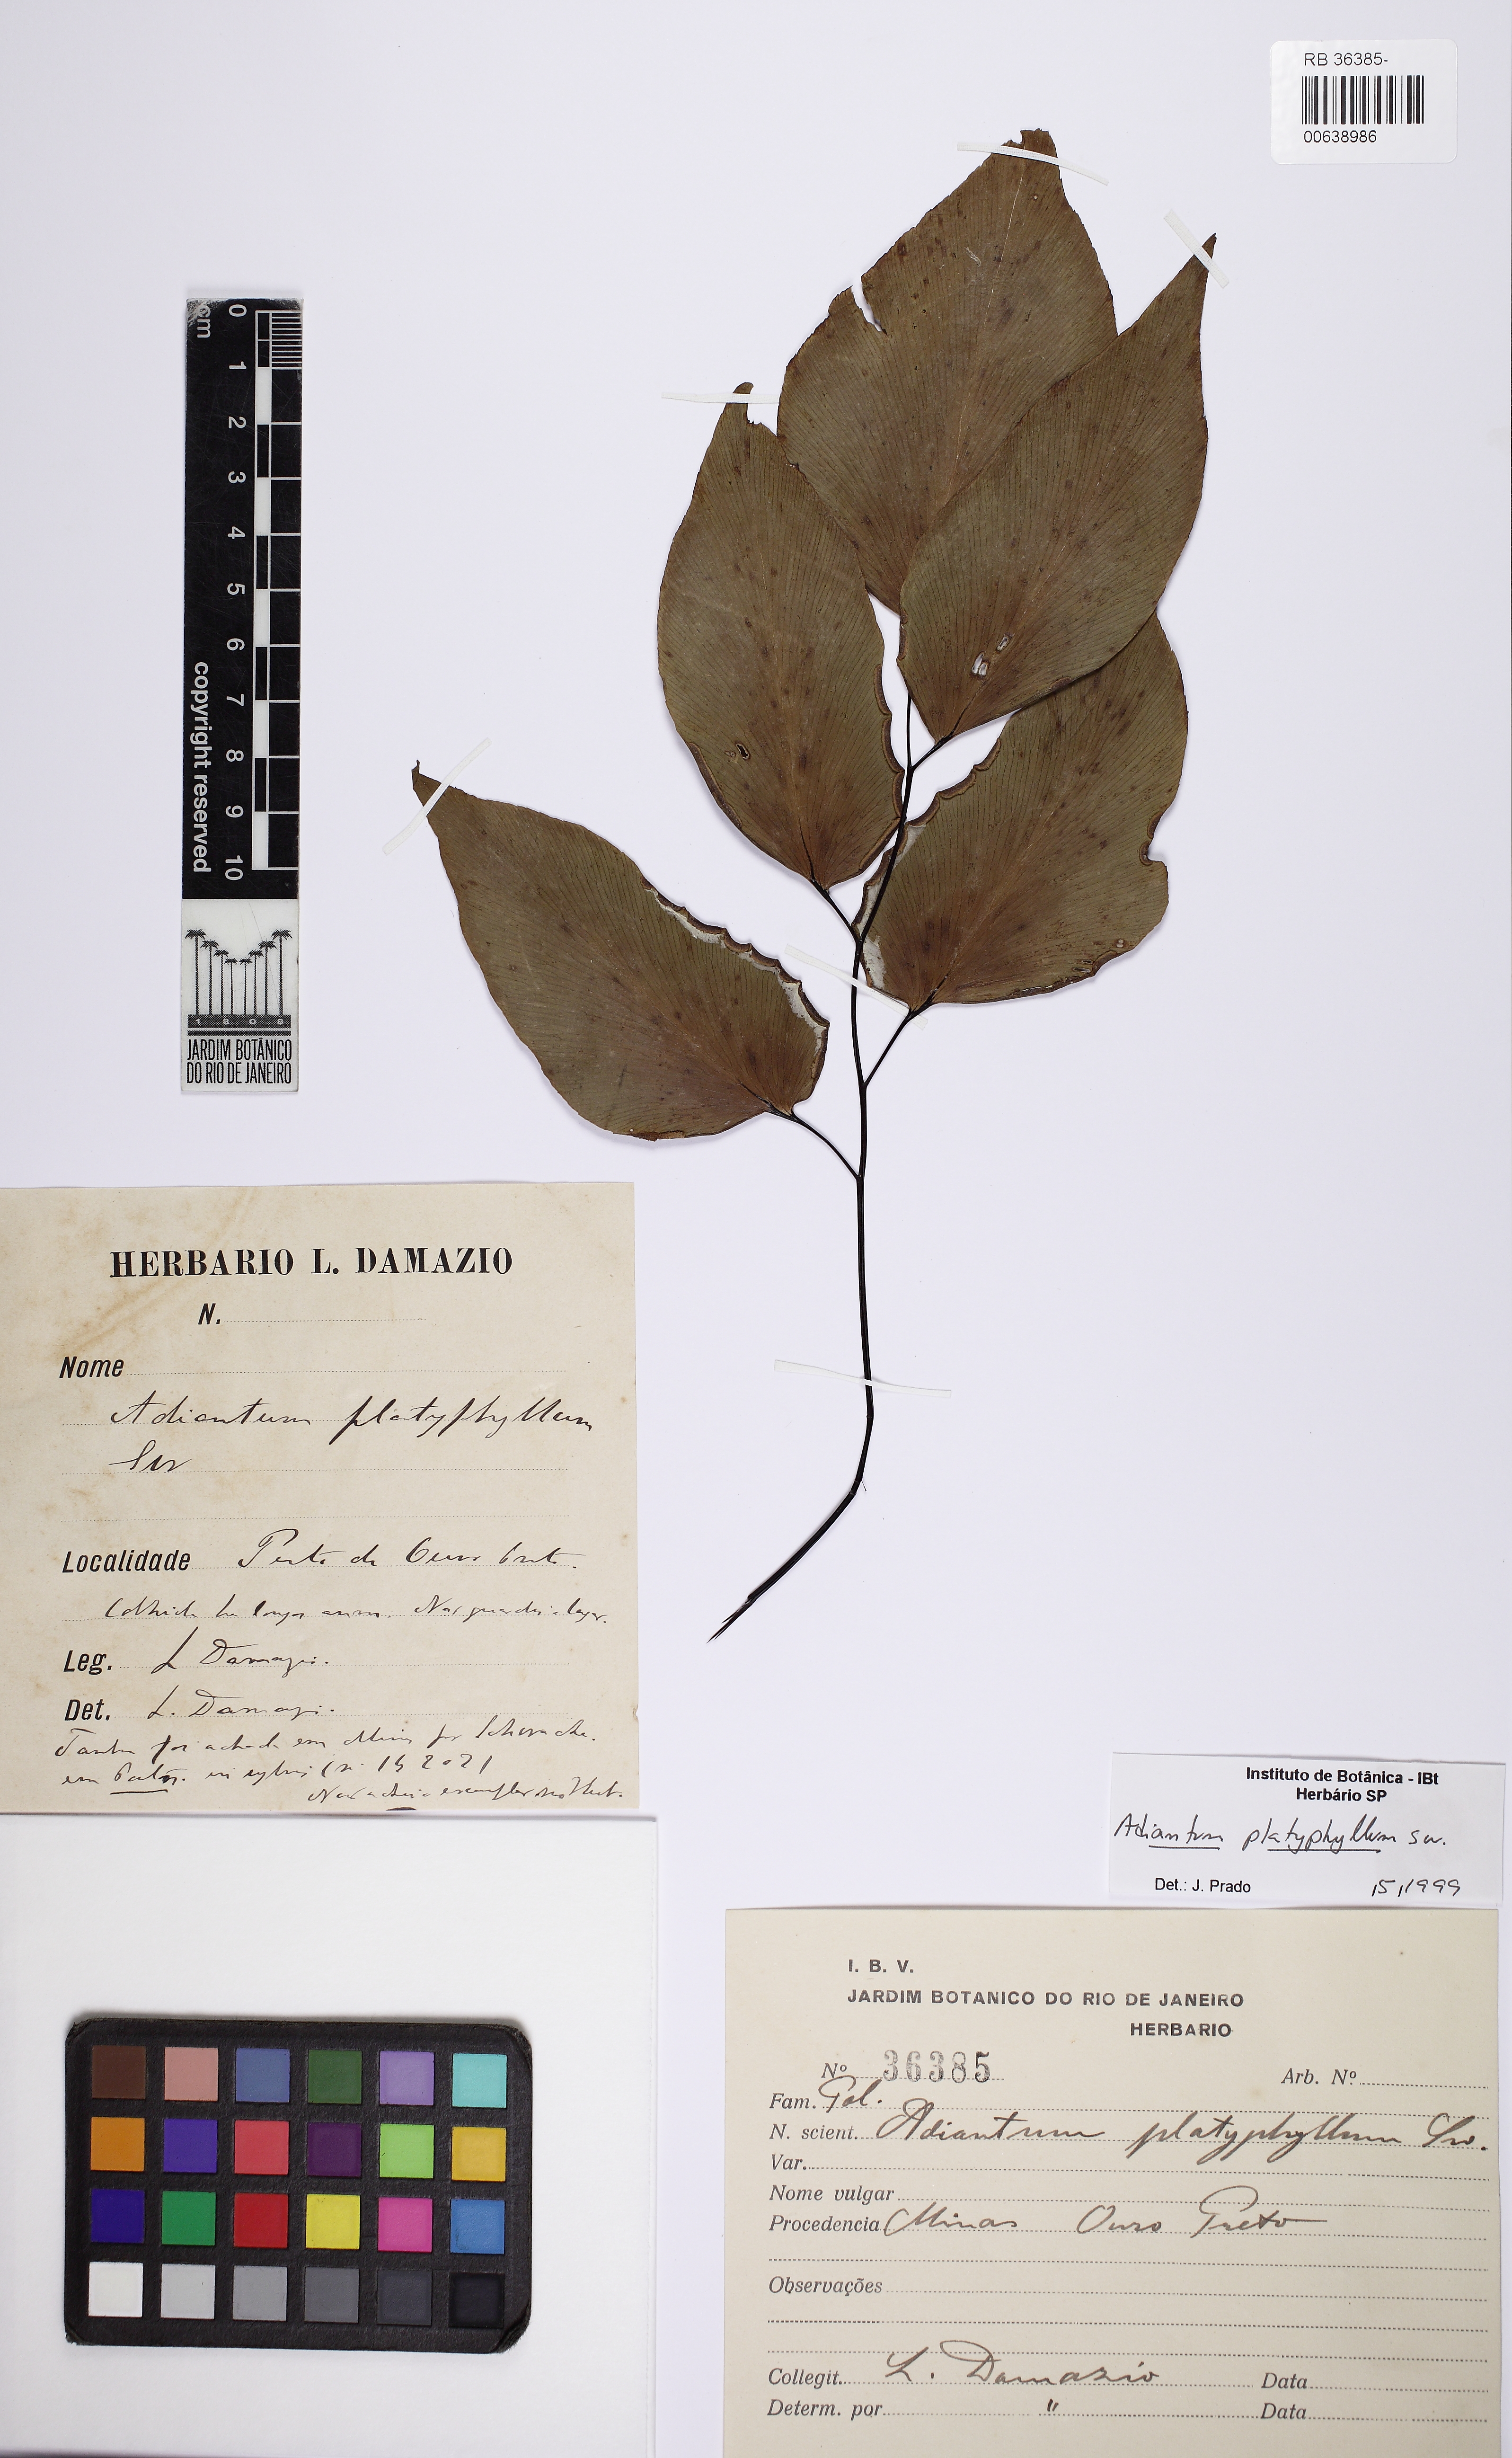 RB 36385-
00638986
cm
0
1
2
3
4
5
6
7
8
9
10
copyright reserved
1808
JARDIM BOTÂNICO
DO RIO DE JANEIRO
HERBARIO L. DAMAZIO
N.
Nome
Adiantum platyphyllum
Sw
Localidade Perto de Ouro Preto.
Colhida ha longos annos. Não guardei o lugar.
Leg. L Damazio.
Det. L. Damazio.
foi achada em Minas por Schwacke.
em
Instituto de Botânica - IBt
Herbário SP
Adiantum platyphyllum Sw.
Det.: J. Prado /5/1999
I. B. V.
JARDIM BOTANICO DO RIO DE JANEIRO
HERBARIO
Nº 36385 Arb. Nº
Fam. Pol.
N. scient. Adiantum platyphyllum Sw.
Var.
Nome vulgar
Procedencia Minas Ouro Preto
Observações
Collegit. L. Damazio Data
Determ. por " Data